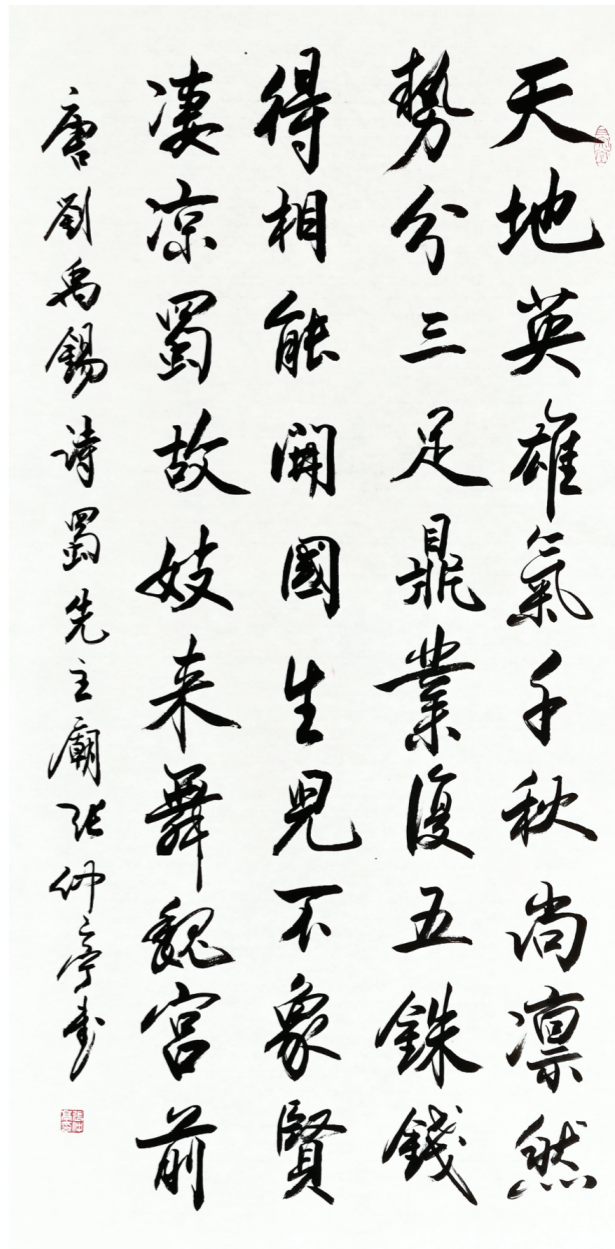 天地英雄氣千秋尚凛然
勢分三足鼎業復五銖錢
得相能開國生兒不象賢
凄凉蜀故妓来舞魏宮前
唐劉禹錫詩蜀先主廟张仲亭书